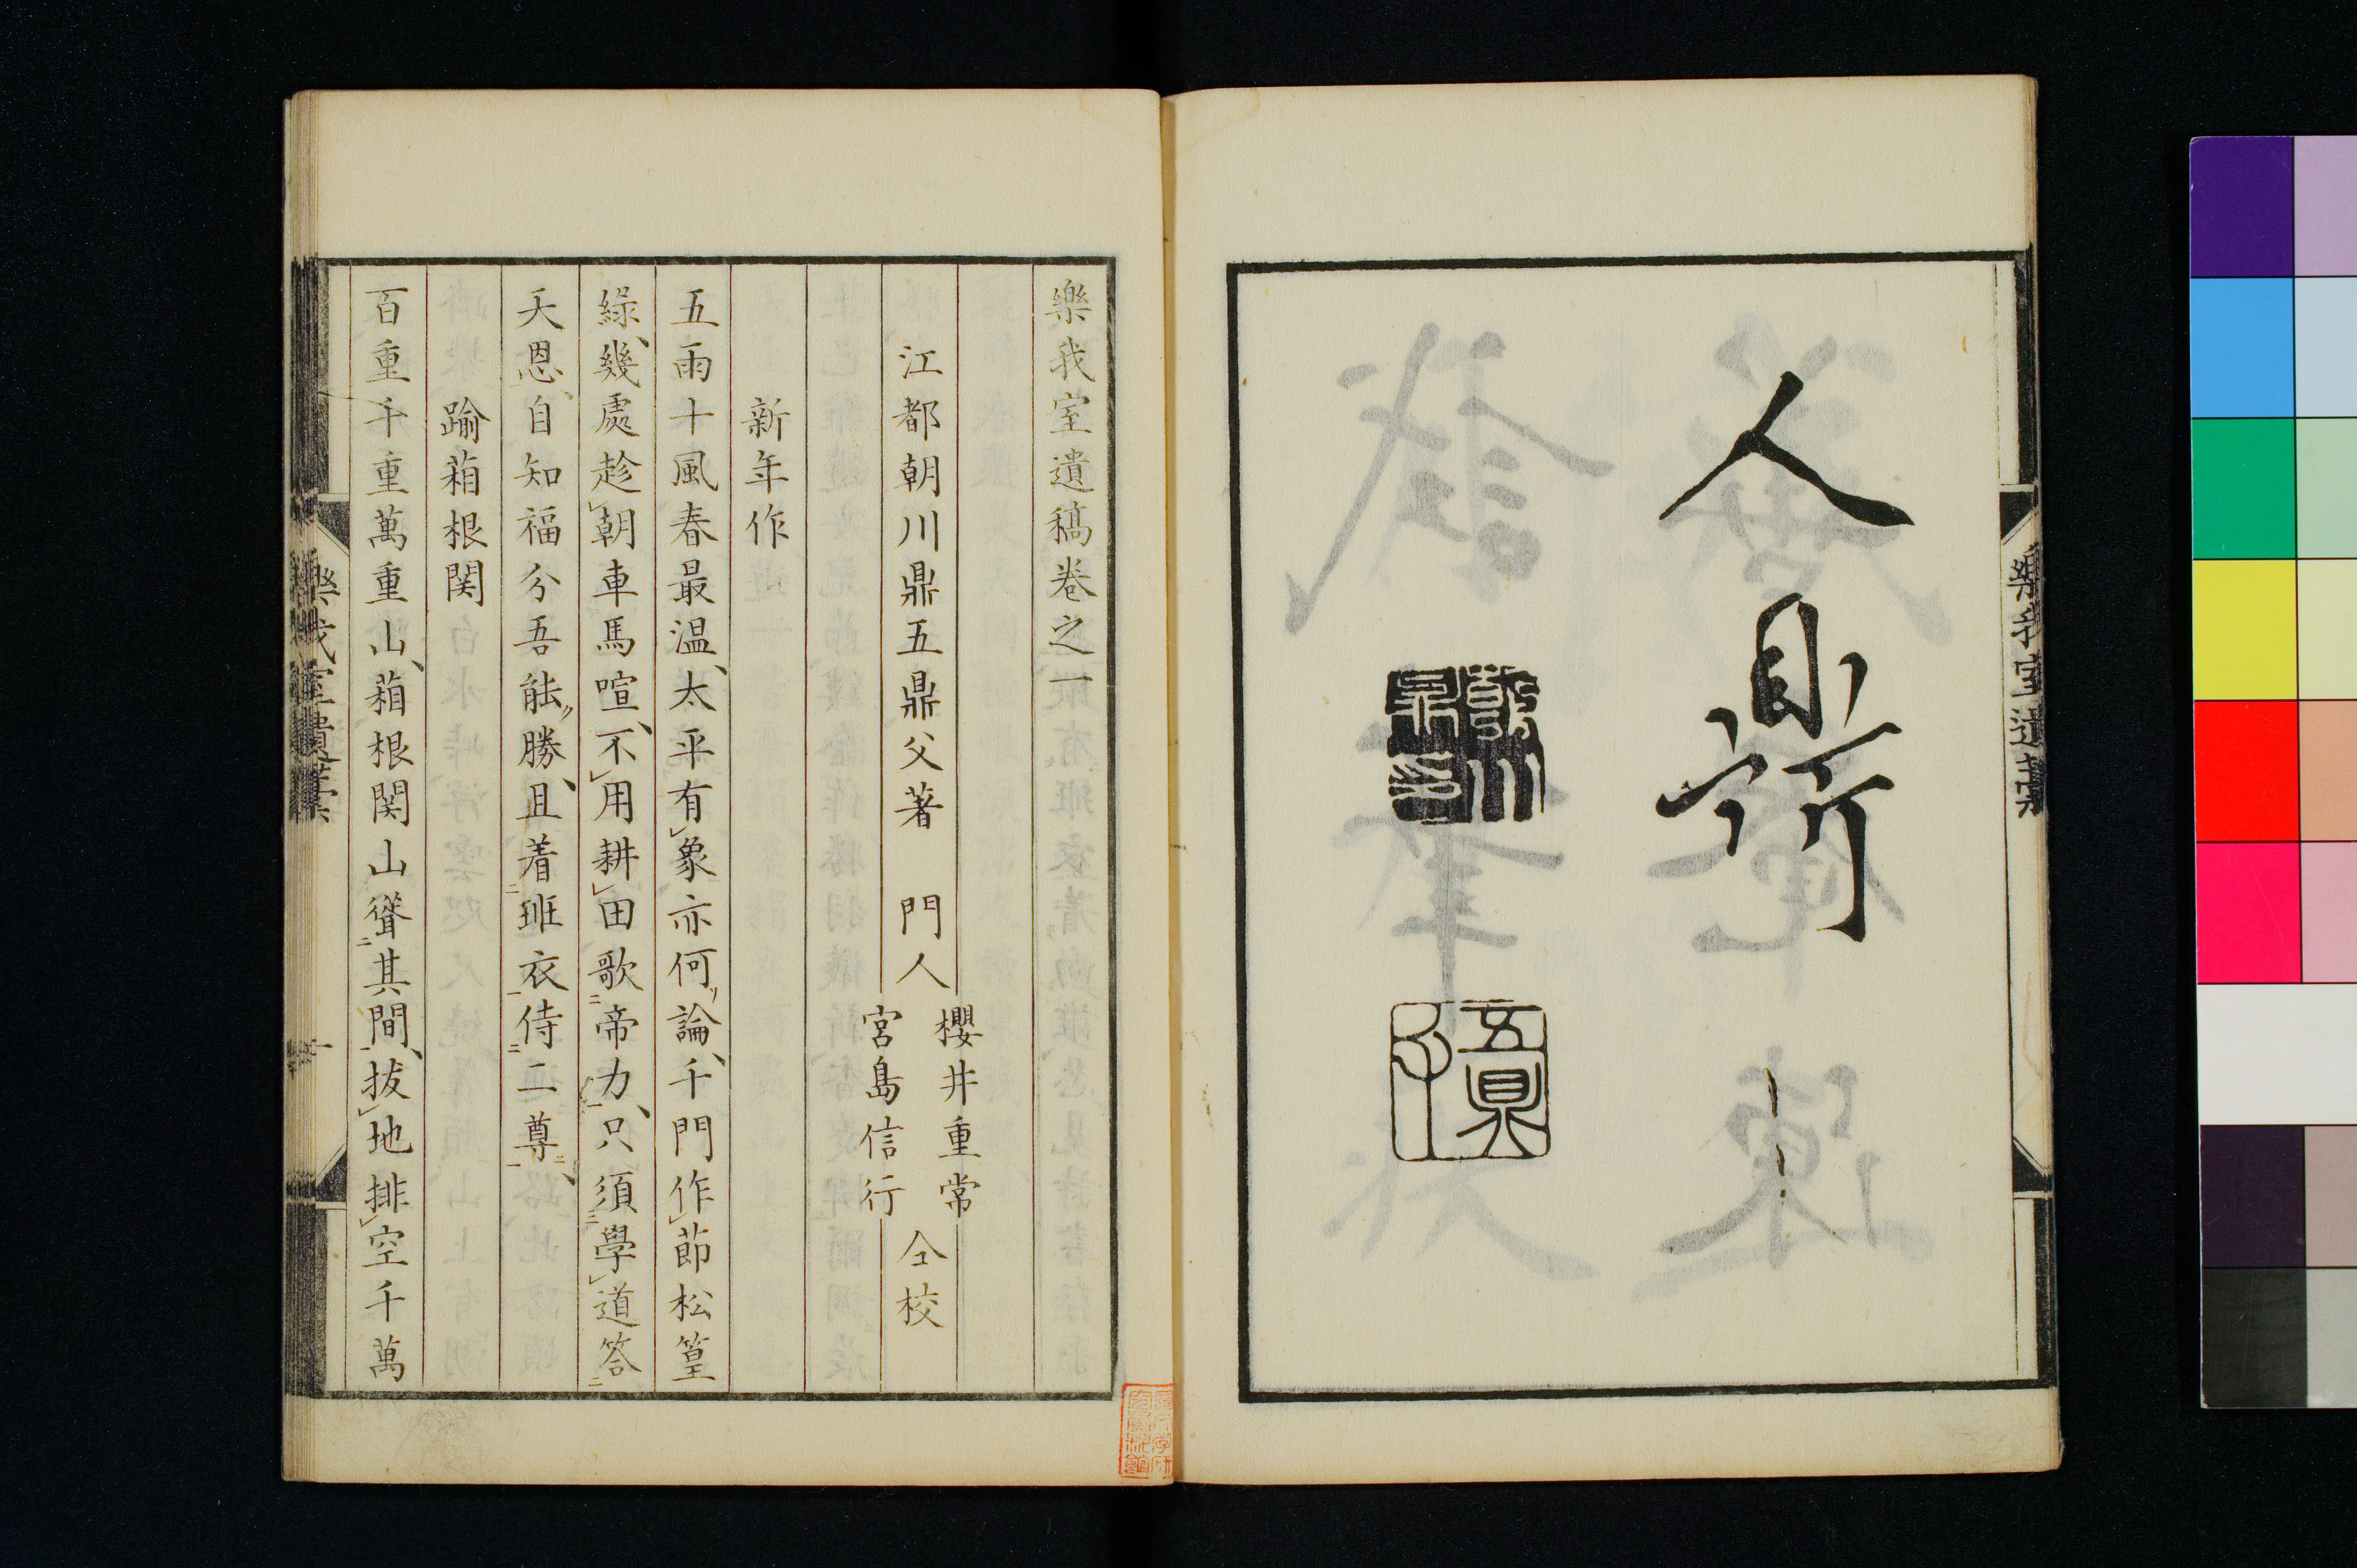 人鼎
樂我室遺稾
樂我室遺稿卷之一
江都朝川鼎五鼎父著　門人
櫻井重常
宮島信行
仝校
新年作
五雨十風春最温太平有象亦何論千門作節松篁
綠幾處趁朝車馬喧不用耕田歌帝力只須學道答
天恩自知福分吾能勝且着班衣侍二尊
踰葙根関
百重千重萬重山葙根関山聳其間拔地排空千萬
樂我室遺稾